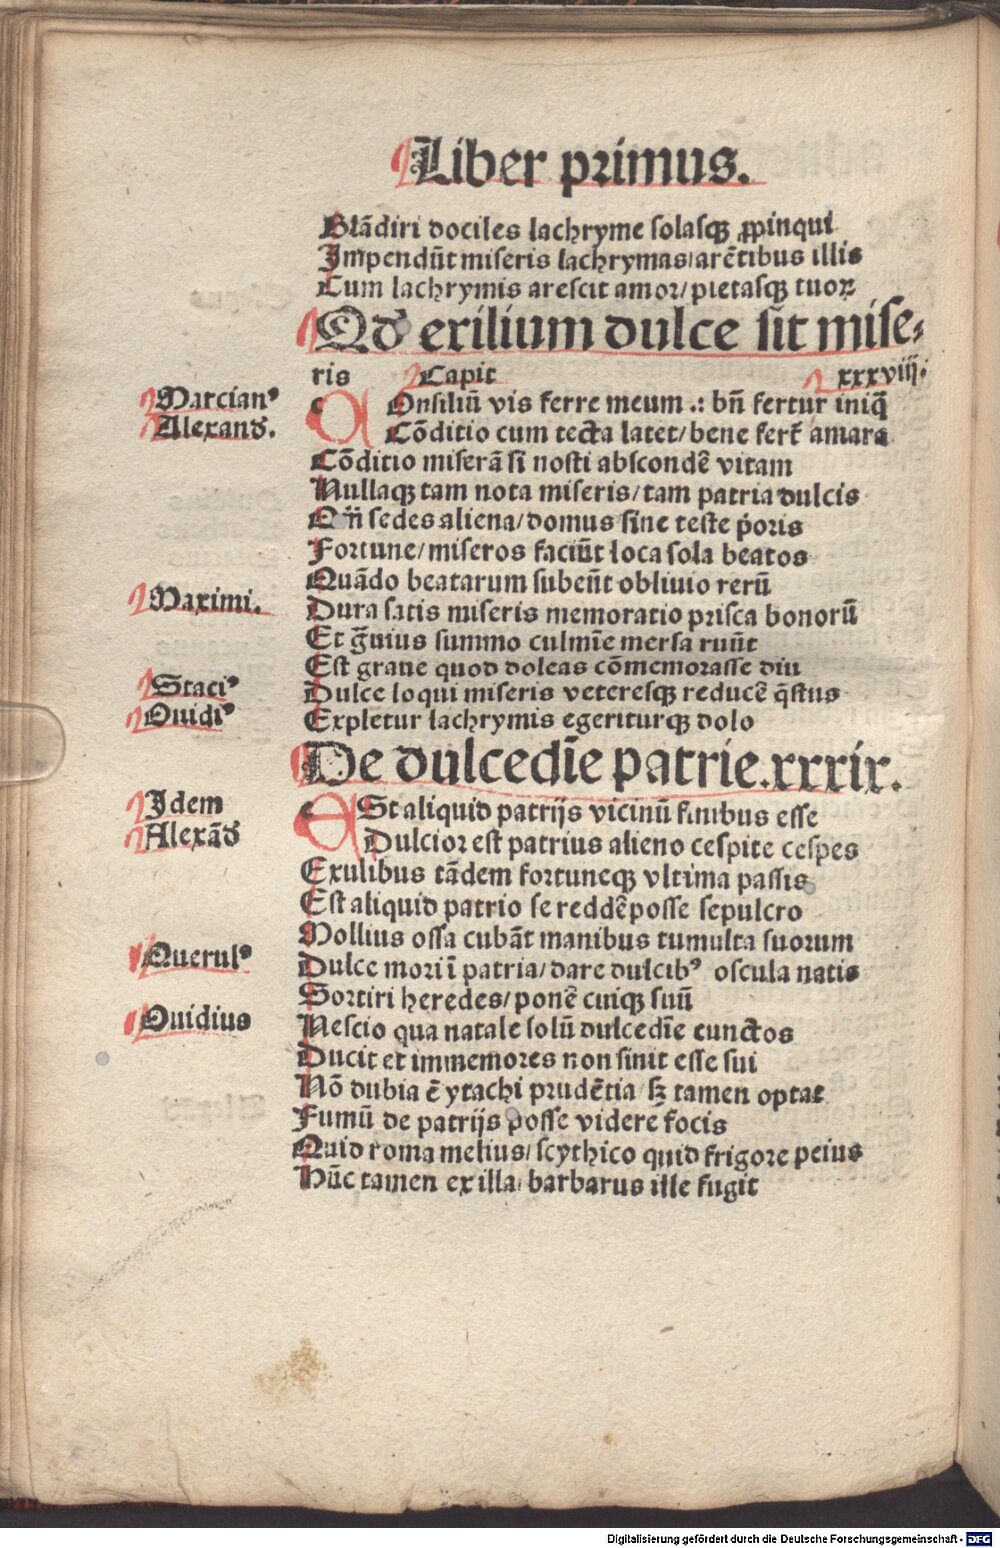 Liber primus.
Blādiri dociles lachryme solasqꝫ ꝓpinqui
Impendūt miseris lachrymas/arētibus illis
Cum lachrymis arescit amor/pietasqꝫ tuoꝝ
Qd exilium dulce sit mise⸗
ris Capit xxxviij.
Marcianꝰ
c Onsiliū vis ferre meum .: bñ fertur iniq̄
Alexand.
Cōditio cum tecta latet/bene fert amara
Cōditio miserā si nosti abscondē vitam
Nullaqꝫ tam nota miseris/tam patria dulcis
Qm̄ sedes aliena/domus sine teste p̄oris
Fortune/miseros faciūt loca sola beatos
Quādo beatarum subeūt obliuio rerū
Maximi.
Dura satis miseris memoratio prisca bonorū
Et g̃uius summo culmīe mersa ruūt
Est graue quod doleas cōmemorasse diu
Staciꝰ
Dulce loqui miseris veteresqꝫ reducē q̄stus
Ouidiꝰ
Expletur lachrymis egeriturqꝫ dolo
De dulcedīe patrie.xxxix.
Idem
e St aliquid patrijs vicinū finibus esse
Alexād
Dulcior est patrius alieno cespite cespes
Exulibus tādem fortuneqꝫ vltima passis
Est aliquid patrio se reddē posse sepulcro
Mollius ossa cubāt manibus tumulta suorum
Querulꝰ
Dulce mori ī patria/dare dulcibꝰ oscula natis
Sortiri heredes/ponē cuiqꝫ suū
Ouidius
Nescio qua natale solū dulcedīe cunctos
Ducit et immemores non sinit esse sui
Nō dubia ē ytachi prudētia/sꝫ tamen optat
Fumū de patrijs posse videre focis
Quid roma melius/scythico quid frigore peius
Hūc tamen ex illa/barbarus ille fugit
Digitalisierung gefördert durch die Deutsche Forschungsgemeinschaft - DFG